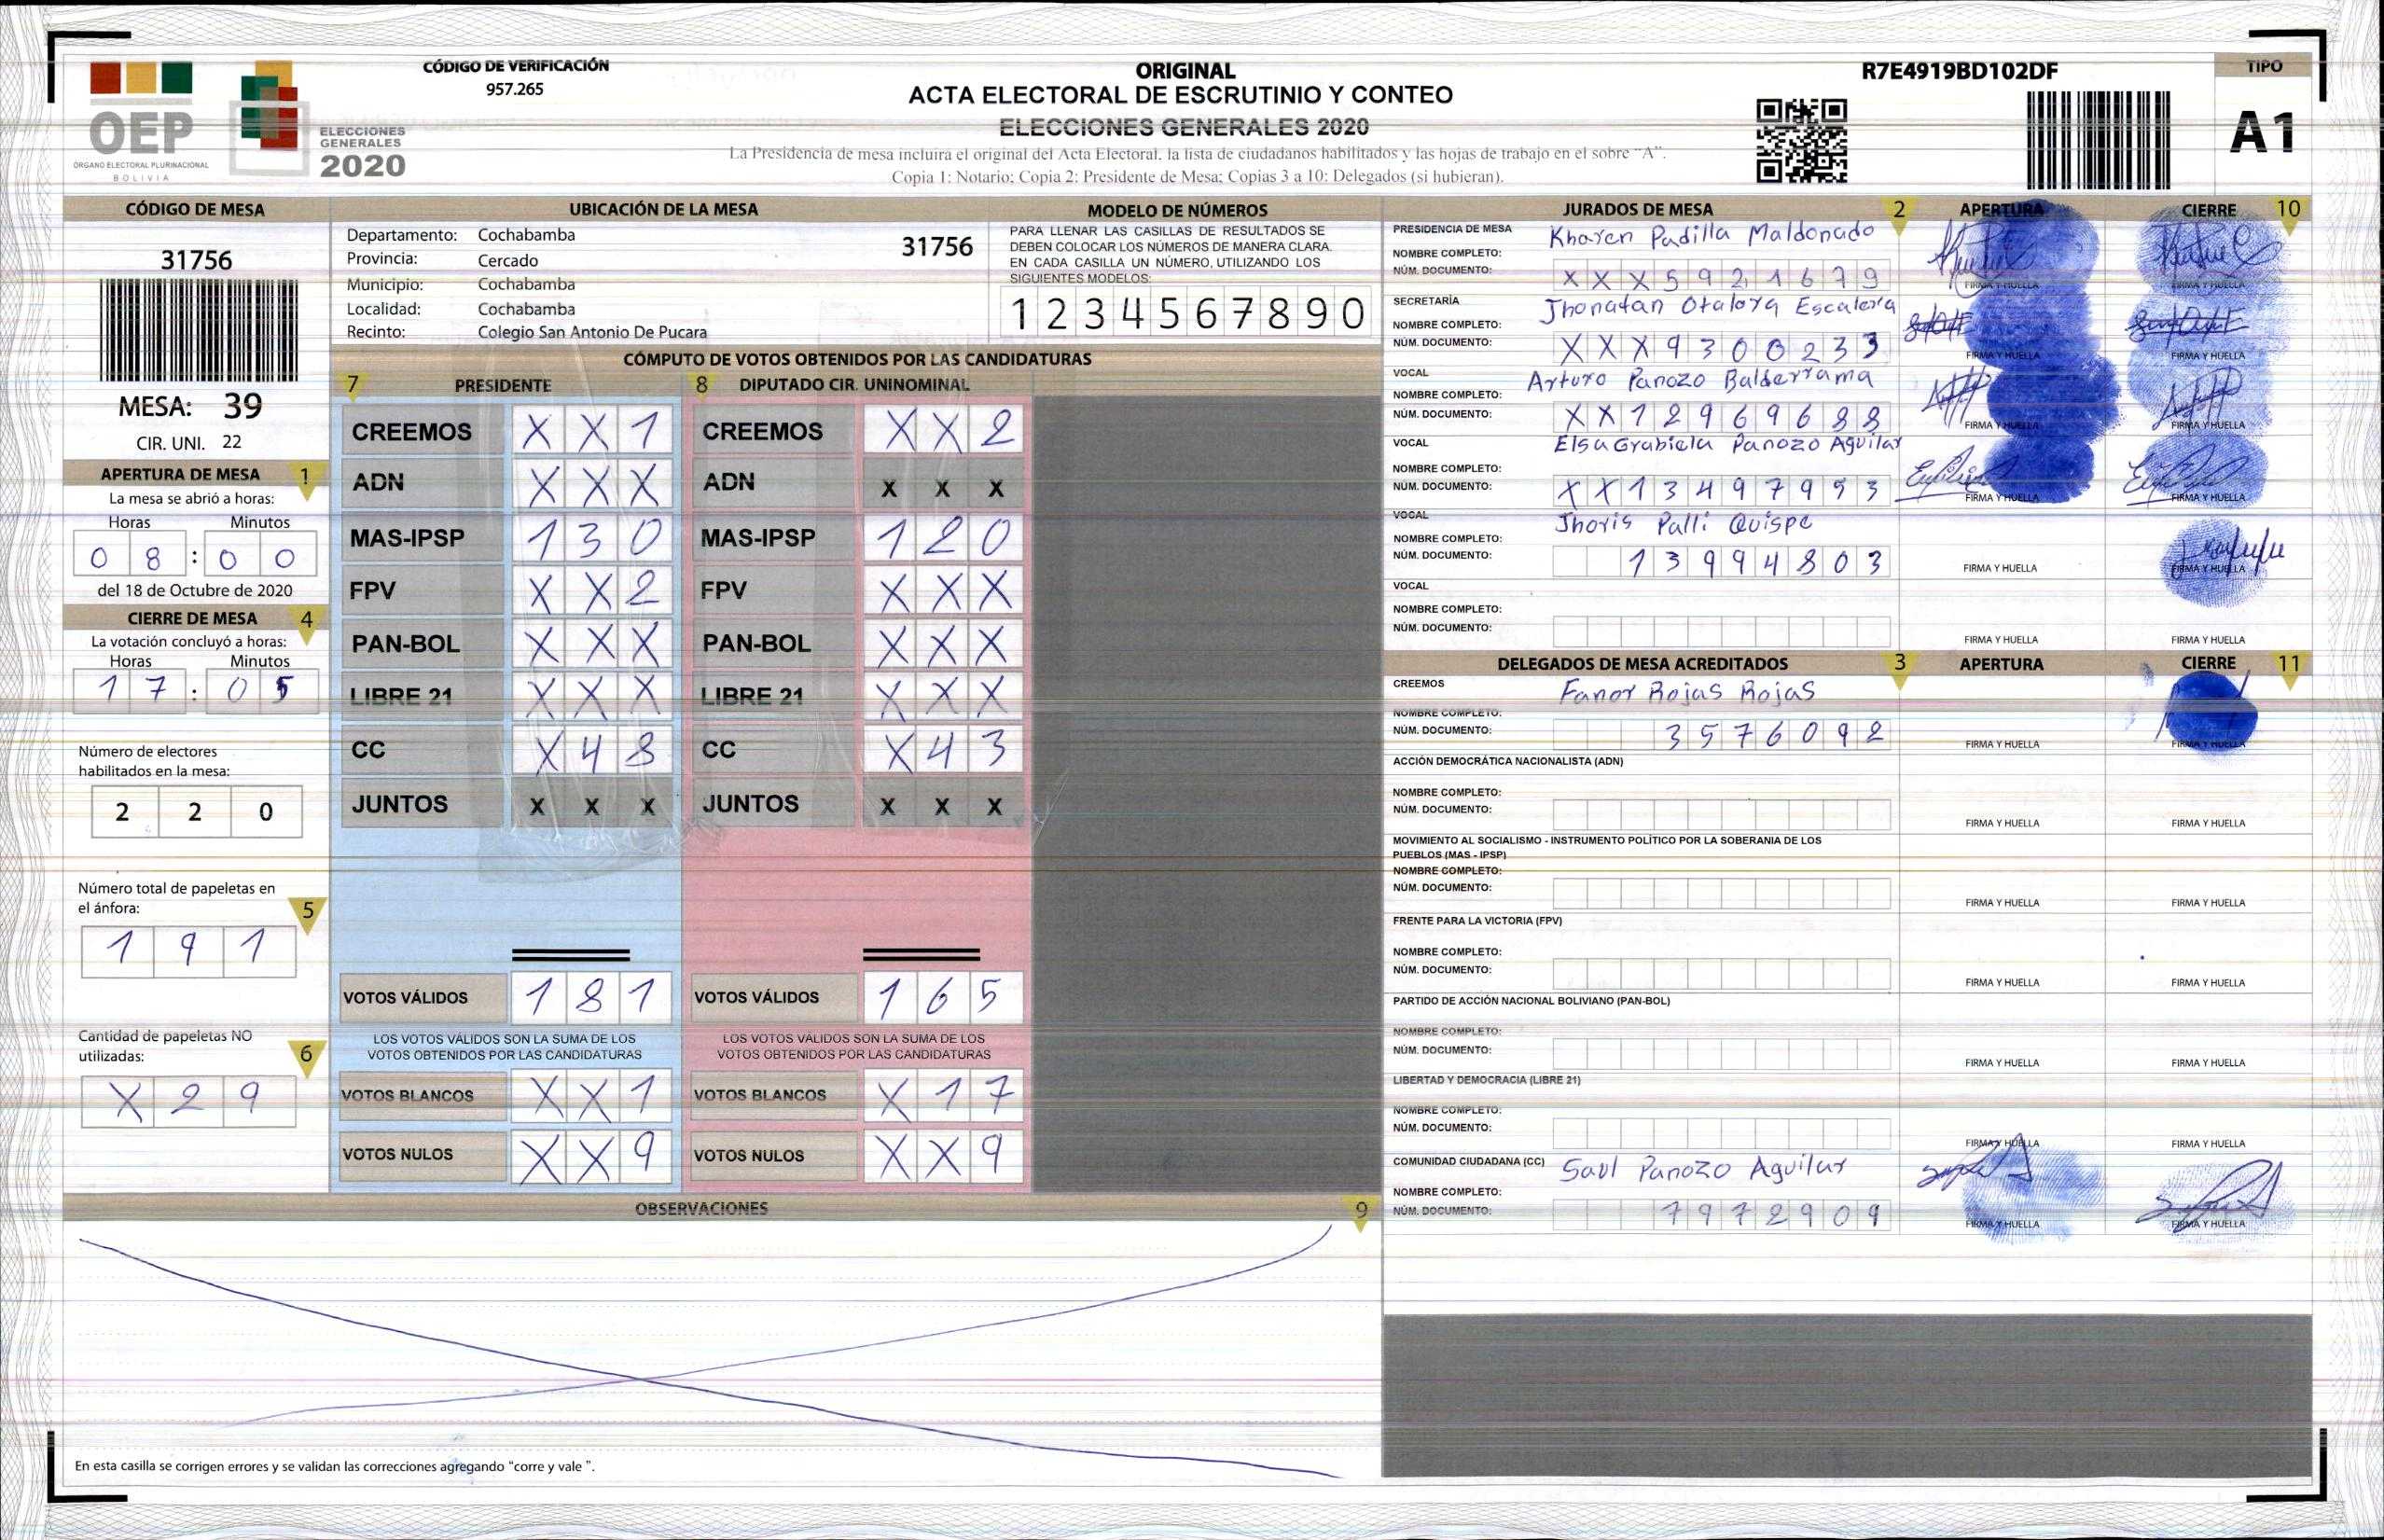 CÓDIGO DE VERIFICACIÓN
957.265
OEP
ÓRGANO ELECTORAL PLURINACIONAL
BOLIVIA
ELECCIONES
GENERALES
2020
ORIGINAL
ACTA ELECTORAL DE ESCRUTINIO Y CONTEO
ELECCIONES GENERALES 2020
La Presidencia de mesa incluira el original del Acta Electoral, la lista de ciudadanos habilitados y las hojas de trabajo en el sobre "A".
Copia 1: Notario; Copia 2: Presidente de Mesa; Copias 3 a 10: Delegados (si hubieran).
R7E4919BD102DF
TIPO
A1
CÓDIGO DE MESA
31756
MESA: 39
CIR. UNI. 22
APERTURA DE MESA 1
La mesa se abrió a horas:
Horas Minutos
0 8 : 0 0
del 18 de Octubre de 2020
CIERRE DE MESA 4
La votación concluyó a horas:
Horas Minutos
1 7 : 0 5
Número de electores
habilitados en la mesa:
2 2 0
Número total de papeletas en
el ánfora:
5
1 9 1
Cantidad de papeletas NO
utilizadas:
6
X 2 9
UBICACIÓN DE LA MESA
Departamento: Cochabamba
31756
Provincia: Cercado
Municipio: Cochabamba
Localidad: Cochabamba
Recinto: Colegio San Antonio De Pucara
MODELO DE NÚMEROS
PARA LLENAR LAS CASILLAS DE RESULTADOS SE
DEBEN COLOCAR LOS NÚMEROS DE MANERA CLARA.
EN CADA CASILLA UN NÚMERO, UTILIZANDO LOS
SIGUIENTES MODELOS:
1 2 3 4 5 6 7 8 9 0
CÓMPUTO DE VOTOS OBTENIDOS POR LAS CANDIDATURAS
7 PRESIDENTE
CREEMOS X X 1
ADN X X X
MAS-IPSP 1 3 0
FPV X X 2
PAN-BOL X X X
LIBRE 21 X X X
CC X 4 8
JUNTOS X X X
VOTOS VÁLIDOS 1 8 1
LOS VOTOS VÁLIDOS SON LA SUMA DE LOS
VOTOS OBTENIDOS POR LAS CANDIDATURAS
VOTOS BLANCOS X X 1
VOTOS NULOS X X 9
8 DIPUTADO CIR. UNINOMINAL
CREEMOS X X 2
ADN X X X
MAS-IPSP 1 2 0
FPV X X X
PAN-BOL X X X
LIBRE 21 X X X
CC X 4 3
JUNTOS X X X
VOTOS VÁLIDOS 1 6 5
LOS VOTOS VÁLIDOS SON LA SUMA DE LOS
VOTOS OBTENIDOS POR LAS CANDIDATURAS
VOTOS BLANCOS X 1 7
VOTOS NULOS X X 9
OBSERVACIONES 9
En esta casilla se corrigen errores y se validan las correcciones agregando "corre y vale ".
JURADOS DE MESA 2 APERTURA CIERRE 10
PRESIDENCIA DE MESA
NOMBRE COMPLETO: Kharen Padilla Maldonado
NÚM. DOCUMENTO: X X X 5 9 2 1 6 7 9
FIRMA Y HUELLA FIRMA Y HUELLA
SECRETARÍA
NOMBRE COMPLETO: Jhonatan Otalora Escalera
NÚM. DOCUMENTO: X X X 9 3 0 0 2 3 3
FIRMA Y HUELLA FIRMA Y HUELLA
VOCAL
NOMBRE COMPLETO: Arturo Panozo Balderrama
NÚM. DOCUMENTO: X X 1 2 9 6 9 6 8 8
FIRMA Y HUELLA FIRMA Y HUELLA
VOCAL
NOMBRE COMPLETO: Elsa Grabiela Panozo Aguilar
NÚM. DOCUMENTO: X X 1 3 4 9 7 9 5 3
FIRMA Y HUELLA FIRMA Y HUELLA
VOCAL
NOMBRE COMPLETO: Jhoris Palli Quispe
NÚM. DOCUMENTO: 1 3 9 9 4 8 0 3
FIRMA Y HUELLA FIRMA Y HUELLA
VOCAL
NOMBRE COMPLETO:
NÚM. DOCUMENTO:
FIRMA Y HUELLA FIRMA Y HUELLA
DELEGADOS DE MESA ACREDITADOS 3 APERTURA CIERRE 11
CREEMOS
NOMBRE COMPLETO: Fanor Rojas Rojas
NÚM. DOCUMENTO: 3 5 7 6 0 9 2
FIRMA Y HUELLA FIRMA Y HUELLA
ACCIÓN DEMOCRÁTICA NACIONALISTA (ADN)
NOMBRE COMPLETO:
NÚM. DOCUMENTO:
FIRMA Y HUELLA FIRMA Y HUELLA
MOVIMIENTO AL SOCIALISMO - INSTRUMENTO POLÍTICO POR LA SOBERANIA DE LOS
PUEBLOS (MAS - IPSP)
NOMBRE COMPLETO:
NÚM. DOCUMENTO:
FIRMA Y HUELLA FIRMA Y HUELLA
FRENTE PARA LA VICTORIA (FPV)
NOMBRE COMPLETO:
NÚM. DOCUMENTO:
FIRMA Y HUELLA FIRMA Y HUELLA
PARTIDO DE ACCIÓN NACIONAL BOLIVIANO (PAN-BOL)
NOMBRE COMPLETO:
NÚM. DOCUMENTO:
FIRMA Y HUELLA FIRMA Y HUELLA
LIBERTAD Y DEMOCRACIA (LIBRE 21)
NOMBRE COMPLETO:
NÚM. DOCUMENTO:
FIRMA Y HUELLA FIRMA Y HUELLA
COMUNIDAD CIUDADANA (CC)
NOMBRE COMPLETO: Saul Panozo Aguilar
NÚM. DOCUMENTO: 7 9 7 2 9 0 9
FIRMA Y HUELLA FIRMA Y HUELLA